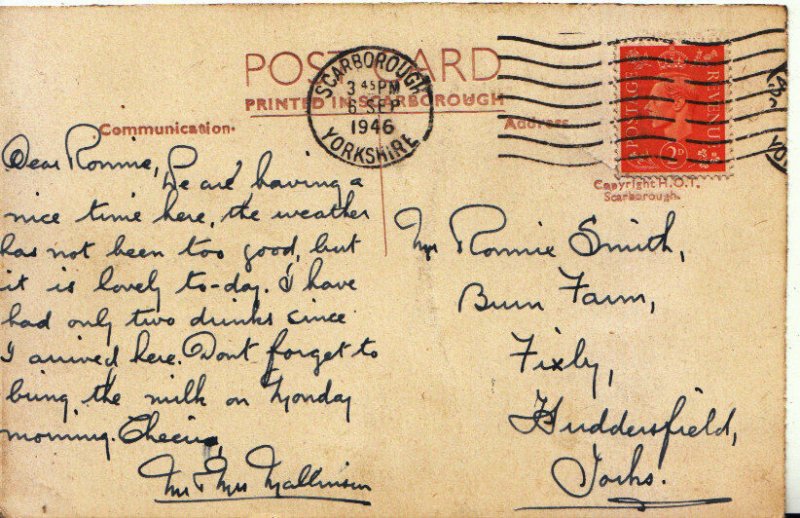 POST CARD
PRINTED IN SCARBOROUGH
SCARBOROUGH
3 45 PM
6 SEP
1946
YORKSHIRE
POSTAGE
REVENUE
2D
Communication.
Address.
Copyright H.O.T.
Scarborough.
Dear Ronnie, We are having a
nice time here, the weather
has not been too good, but
it is lovely to-day. I have
had only two drinks since
I arrived here. Dont forget to
bring the milk on Monday
morning. Cheerio,
Mr & Mrs Mallinson
Ronnie Smith,
Burn Farm,
Fixby,
Huddersfield,
Yorks.